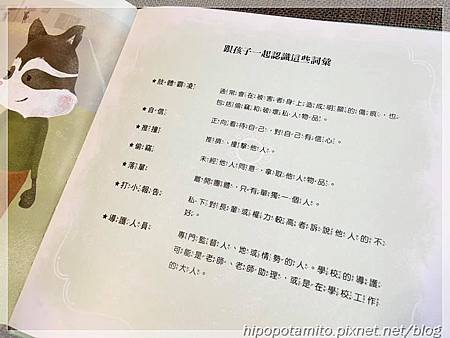 跟孩子一起認識這些詞彙
★肢體霸凌：
通常會在被害者身上造成明顯的傷痕，也
包括偷竊和破壞私人物品。
★自信：
正向看待自己，對自己有信心。
★推撞：
推擠、撞擊他人。
★偷竊：
未經他人同意，拿取他人物品。
★落單：
離開團體，只有單獨一個人。
★打小報告：
私下對長輩或權力較高者訴說他人的不
好。
★導護人員：
專門監督人、地或情勢的人。學校的導護
可能是老師、老師助理，或是在學校工作
的大人。
hipopotamito.pixnet.net/blog